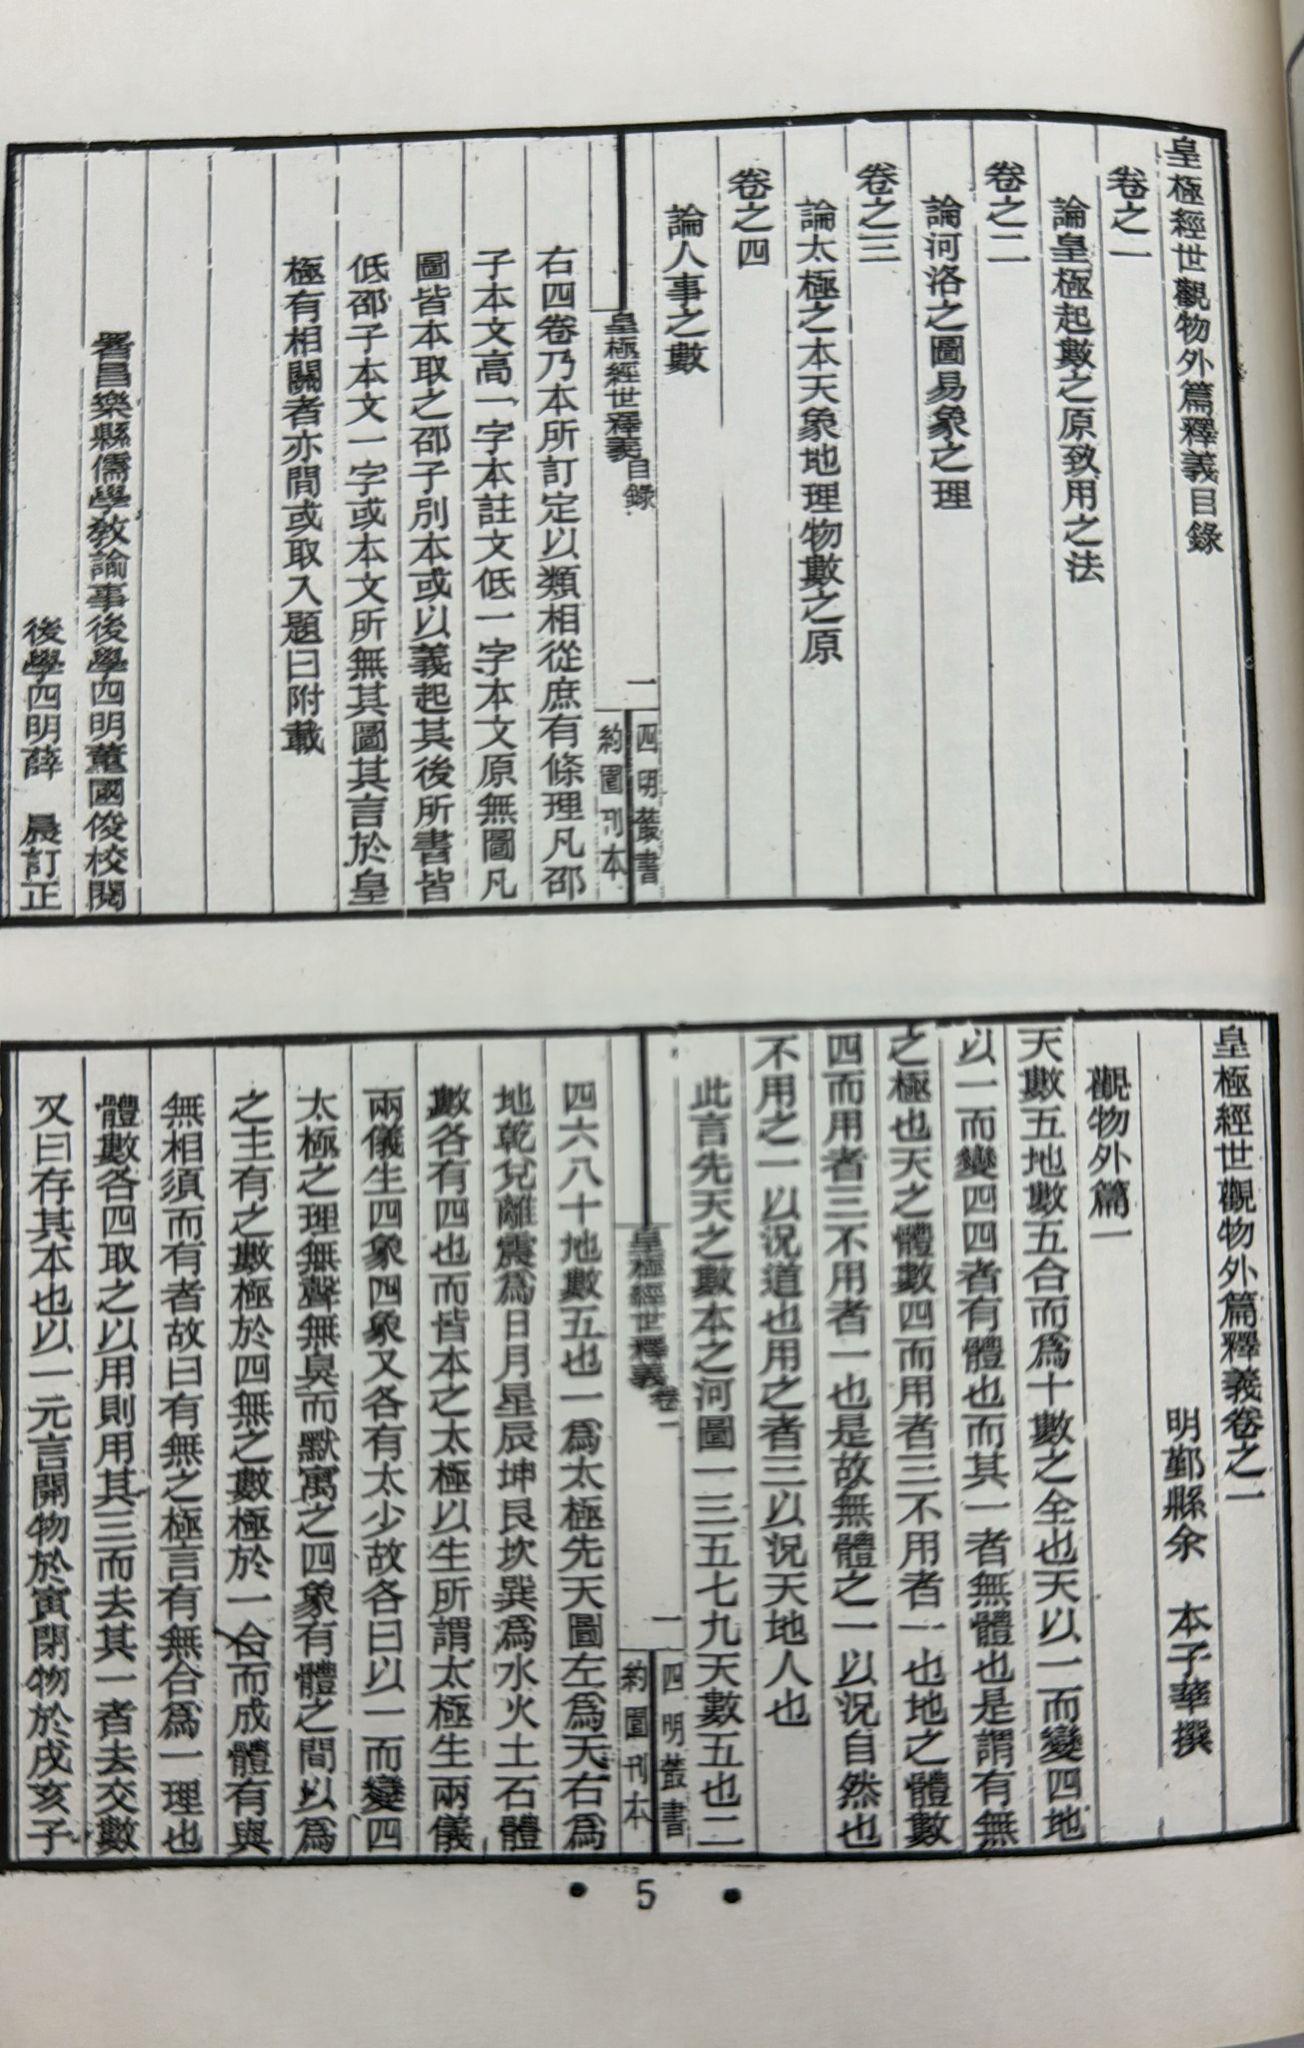 皇極經世觀物外篇釋義目錄
卷之一
論皇極起數之原致用之法
卷之二
論河洛之圖易象之理
卷之三
論太極之本天象地理物數之原
卷之四
論人事之數
皇極經世釋義 目錄 一 四明叢書
約園刊本
右四卷乃本所訂定以類相從庶有條理凡邵
子本文高一字本註文低一字本文原無圖凡
圖皆本取之邵子別本或以義起其後所書皆
低邵子本文一字或本文所無其圖其言於皇
極有相關者亦間或取入題曰附載
署昌樂縣儒學教諭事後學四明董國俊校閱
後學四明薛 晨訂正
皇極經世觀物外篇釋義卷之一
明鄞縣余 本子華撰
觀物外篇一
天數五地數五合而爲十數之全也天以一而變四地
以一而變四四者有體也而其一者無體也是謂有無
之極也天之體數四而用者三不用者一也地之體數
四而用者三不用者一也是故無體之一以況自然也
不用之一以況道也用之者三以況天地人也
此言先天之數本之河圖一三五七九天數五也二
皇極經世釋義 卷一 一 四明叢書
約園刊本
四六八十地數五也一爲太極先天圖左爲天右爲
地乾兌離震爲日月星辰坤艮坎巽爲水火土石體
數各有四也而皆本之太極以生所謂太極生兩儀
兩儀生四象四象又各有太少故各曰以一而變四
太極之理無聲無臭而默寓之四象有體之間以爲
之主有之數極於四無之數極於一合而成體有與
無相須而有者故曰有無之極言有無合爲一理也
體數各四取之以用則用其三而去其一者去交數
又曰存其本也以一元言開物於寅閉物於戌亥子
• 5 •